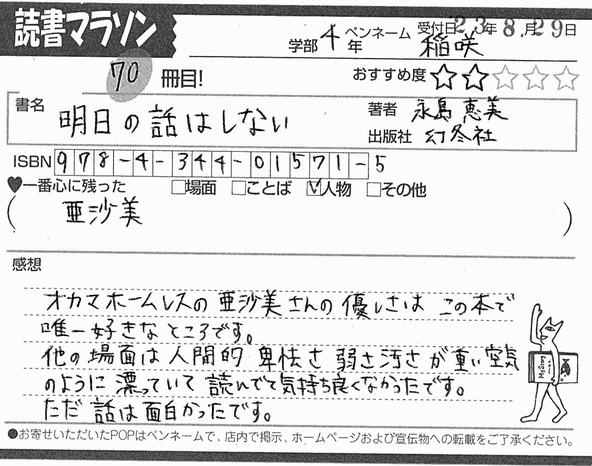 読書マラソン
学部 4年 ペンネーム 稲咲 受付日 23年 8月 29日
70 冊目!
おすすめ度 ★★☆☆☆
書名 明日の話はしない
著者 永島 恵美
出版社 幻冬社
ISBN 978-4-344-01571-5
♥一番心に残った □場面 □ことば ☑人物 □その他
( 亜沙美 )
感想
オカマホームレスの亜沙美さんの優しさは この本で
唯一好きなところです。
他の場面は人間的 卑怯さ 弱さ汚さが重い空気
のように漂っていて読んでて気持ち良くなかったです。
ただ 話は面白かったです。
●お寄せいただいたPOPはペンネームで、店内で掲示、ホームページおよび宣伝物への転載をご了承ください。